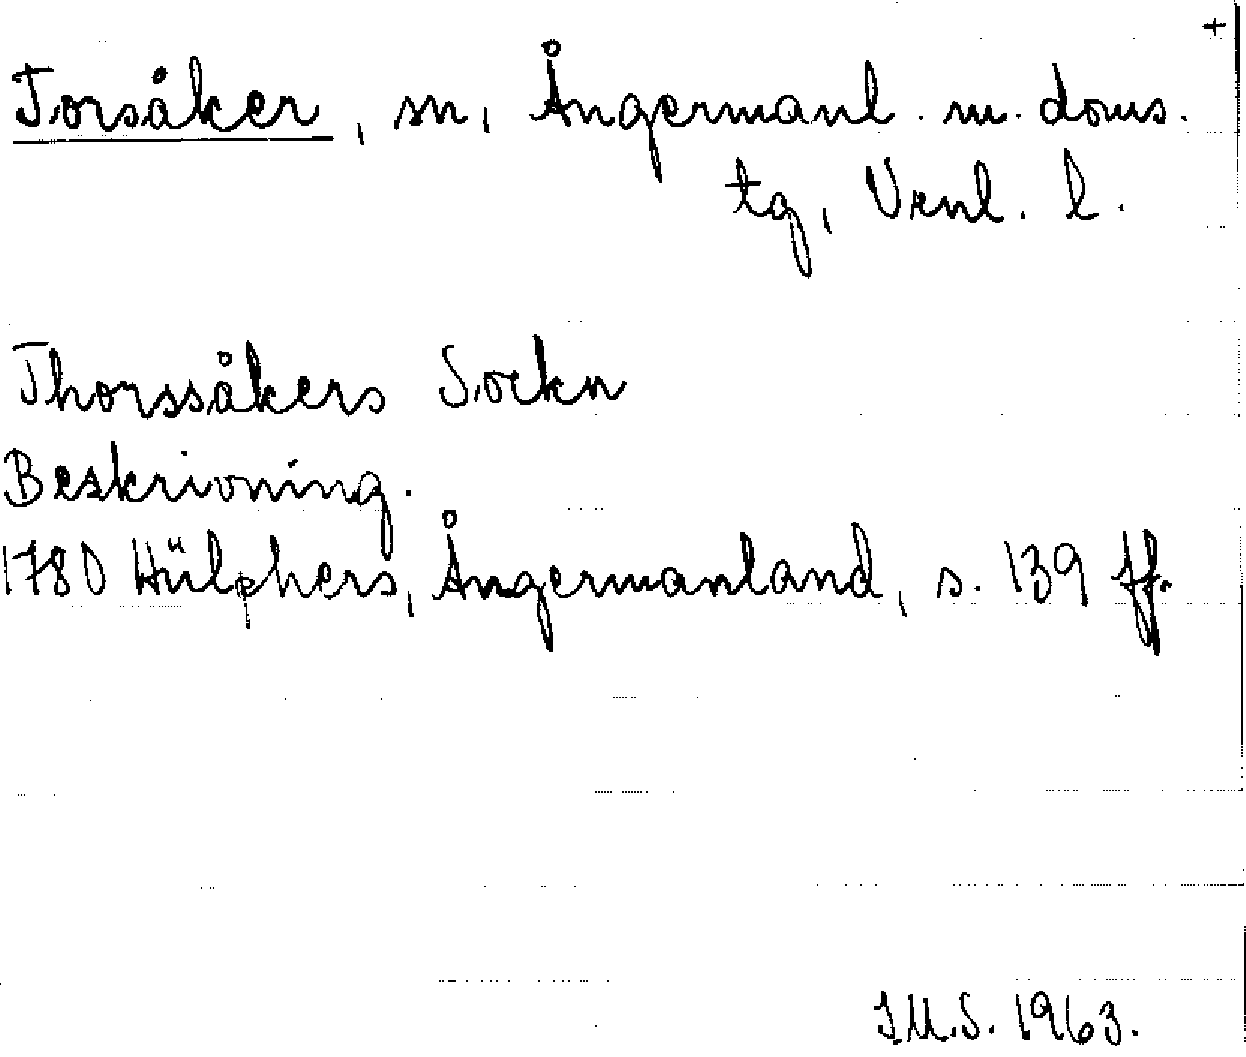 +
Torsåker, sn, Ångermanl. m. doms.
tg, Vrnl. l.
Thorssåkers Sockn
Beskrivning.
1780 Hülphers, Ångermanland, s. 139 ff.
I.M.S. 1963.